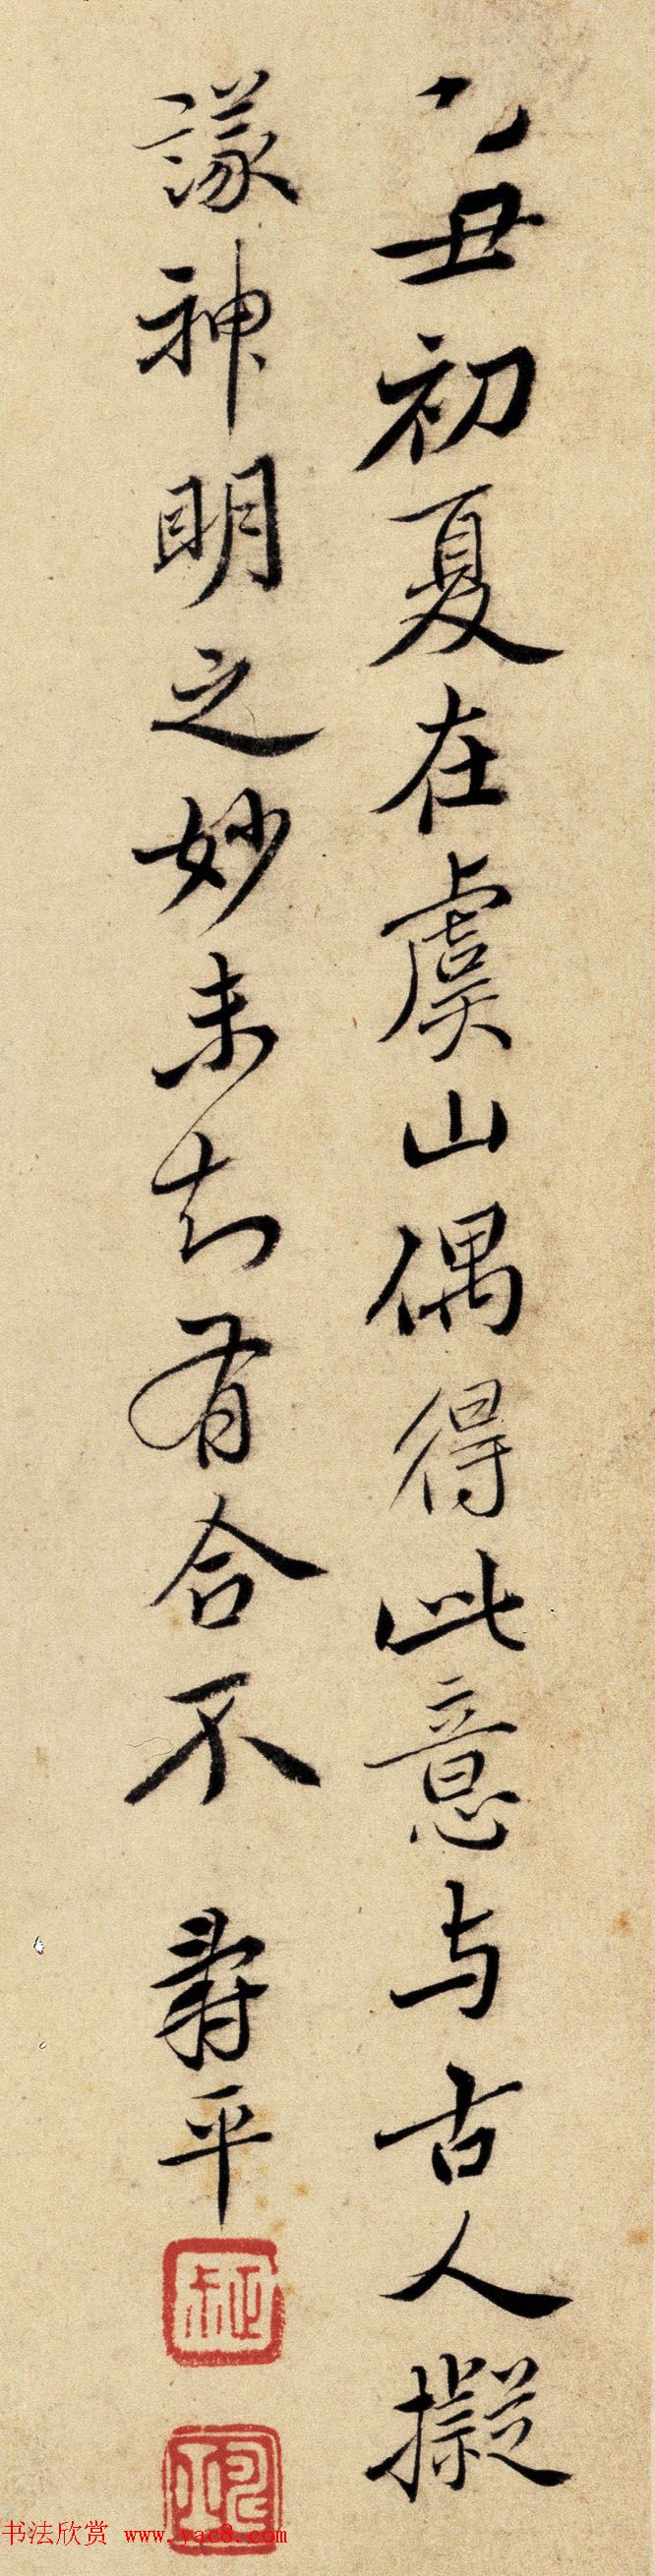 乙丑初夏在虞山偶得此意与古人擬
議神明之妙未知有合不 壽平
书法欣赏 www.yac8.com